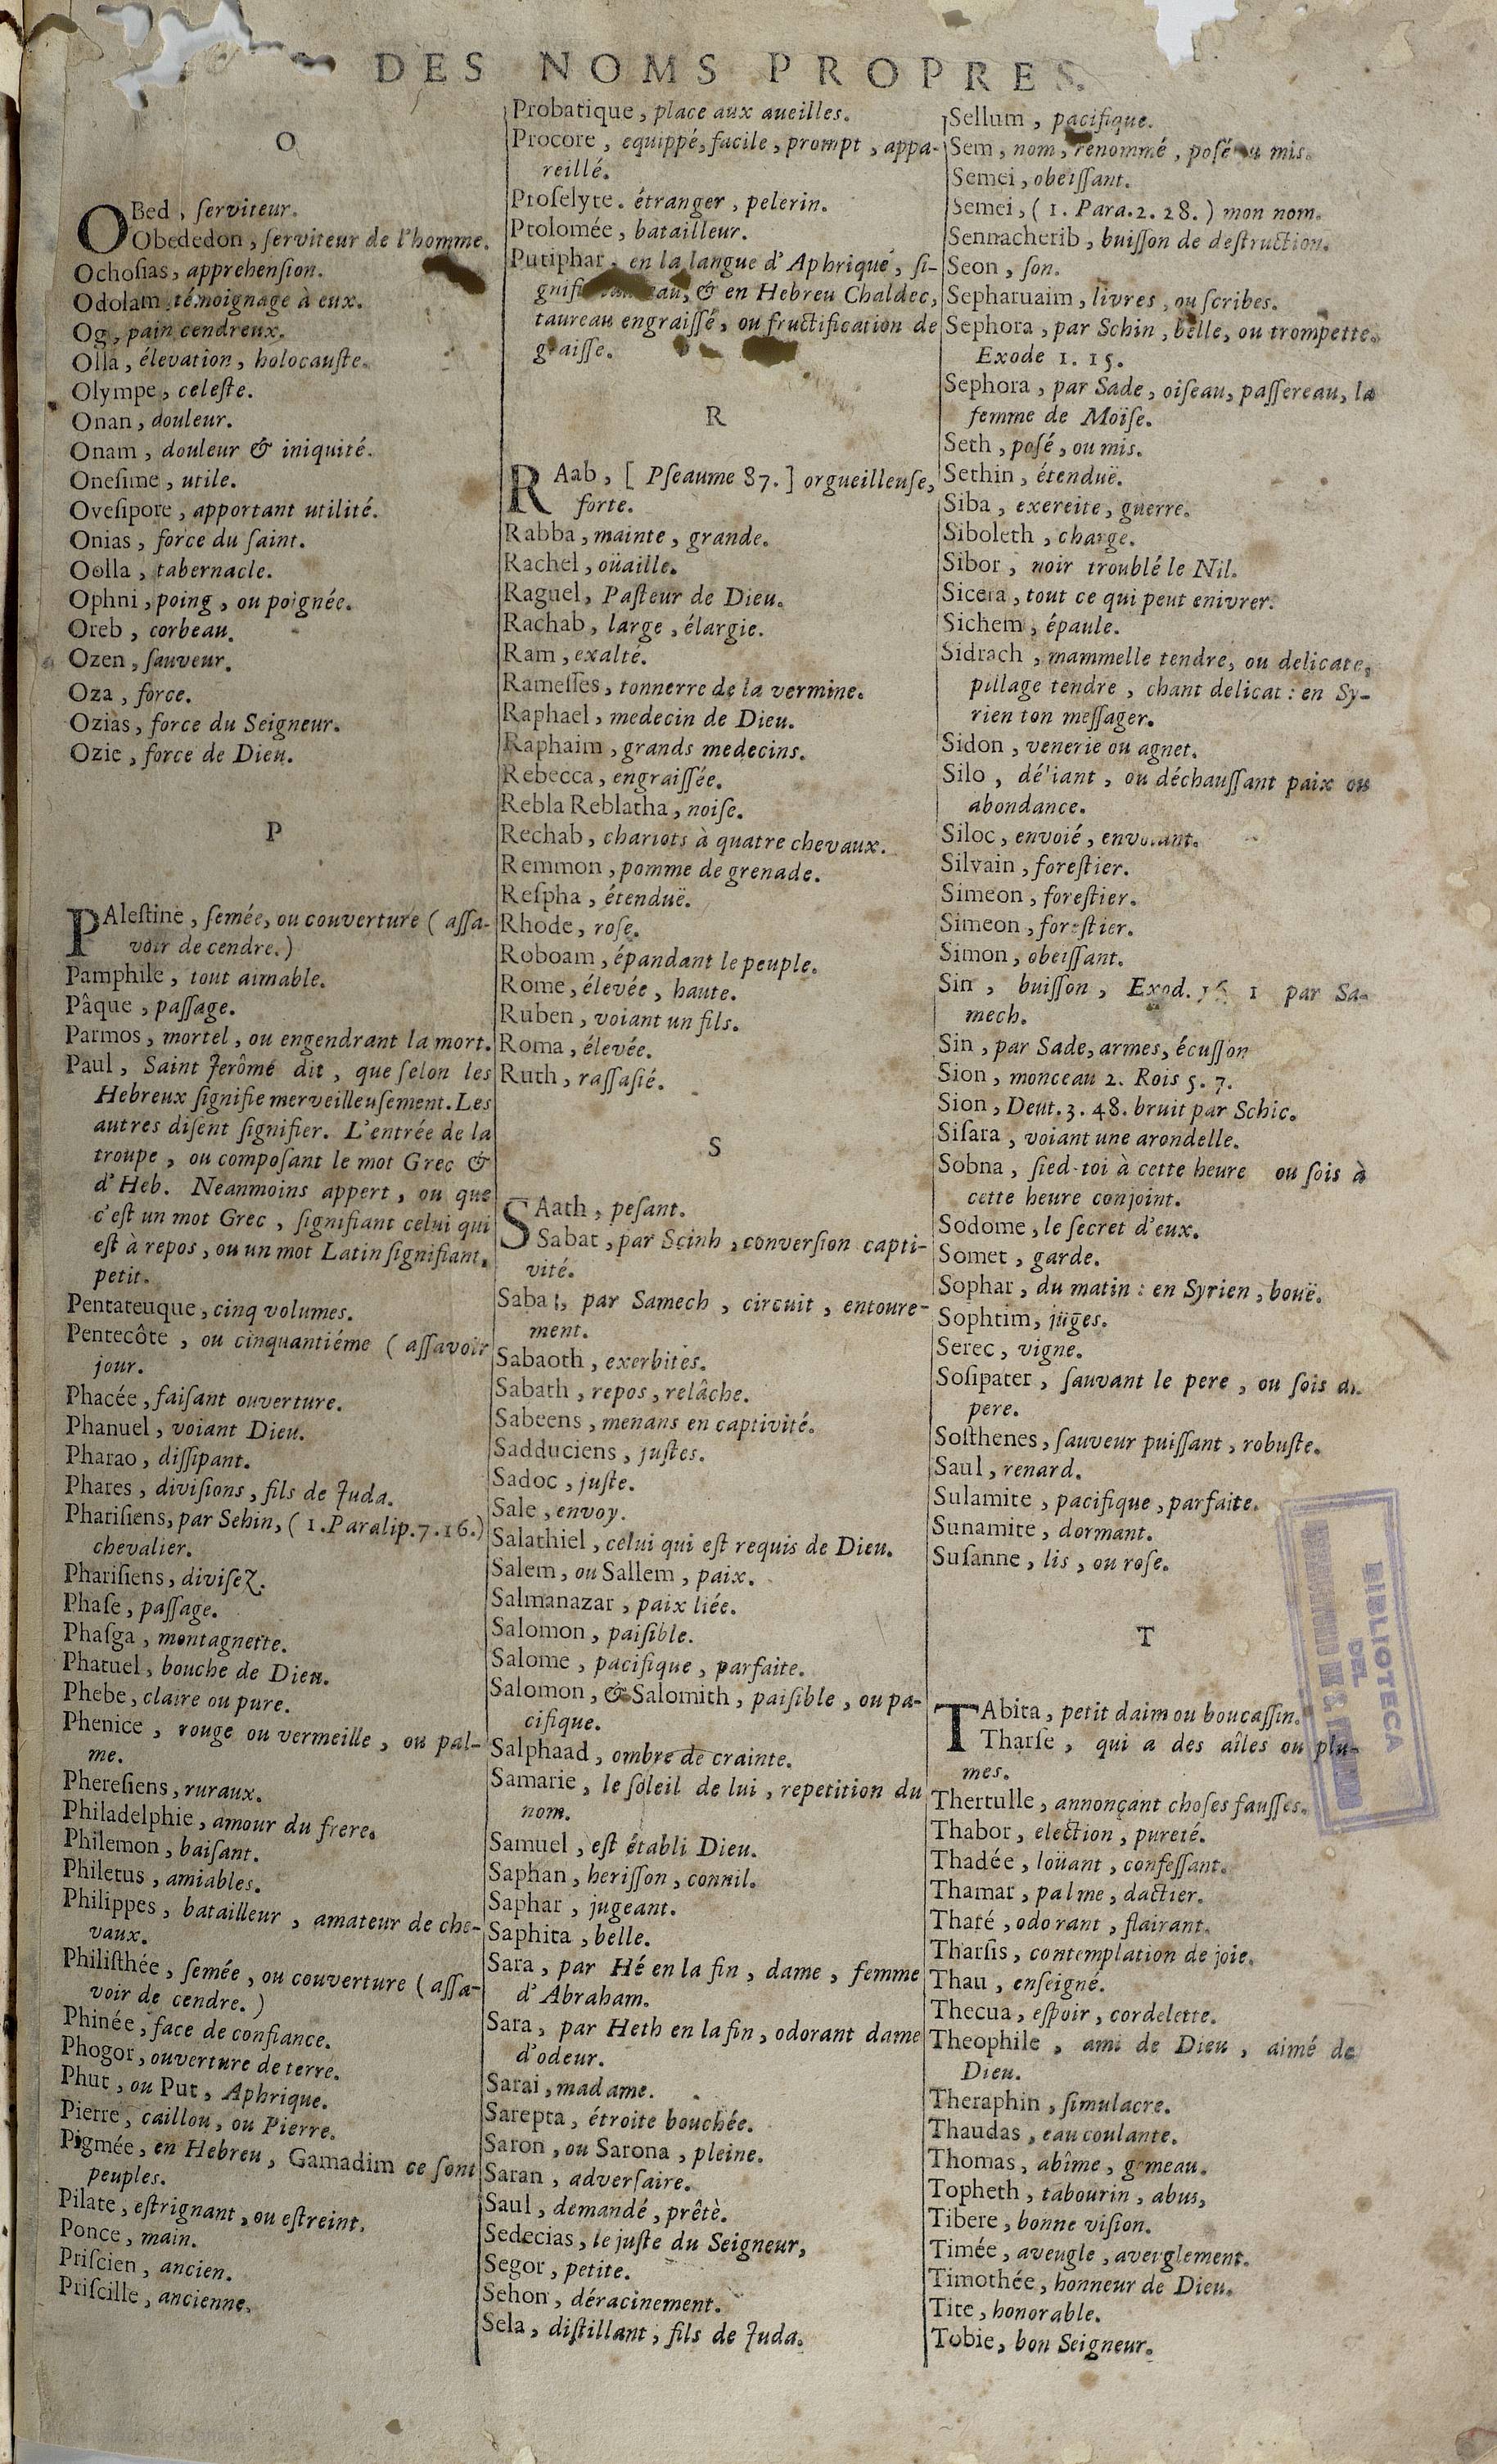 DES NOMS PROPRES.
O
OBed, ſerviteur.
Obededon, ſerviteur de l'homme.
Ochoſias, apprehenſion.
Odolam témoignage à eux.
Og, pain cendreux.
Olla, élevation, holocauſte.
Olympe, celeſte.
Onan, douleur.
Onam, douleur & iniquité.
Oneſime, utile.
Oveſipore, apportant utilité.
Onias, force du ſaint.
Oolla, tabernacle.
Ophni, poing, ou poignée.
Oreb, corbeau.
Ozen, ſauveur.
Oza, force.
Ozias, force du Seigneur.
Ozie, force de Dieu.
P
PAleſtine, ſemée, ou couverture (aſſa-
voir de cendre.)
Pamphile, tout aimable.
Pâque, paſſage.
Parmos, mortel, ou engendrant la mort.
Paul, Saint Jerôme dit, que ſelon les
Hebreux ſignifie merveilleuſement. Les
autres diſent ſignifier. L'entrée de la
troupe, ou compoſant le mot Grec &
d'Heb. Neanmoins appert, ou que
c'eſt un mot Grec, ſignifiant celui qui
eſt à repos, ou un mot Latin ſignifiant,
petit.
Pentateuque, cinq volumes.
Pentecôte, ou cinquantiéme (aſſavoir
jour.
Phacée, faiſant ouverture.
Phanuel, voiant Dieu.
Pharao, diſſipant.
Phares, diviſions, fils de Juda.
Phariſiens, par Sehin, (1. Paralip. 7. 16.)
chevalier.
Phariſiens, diviſez.
Phaſe, paſſage.
Phaſga, montagnette.
Phatuel, bouche de Dieu.
Phebe, claire ou pure.
Phenice, rouge ou vermeille, ou pal-
me.
Phereſiens, ruraux.
Philadelphie, amour du frere.
Philemon, baiſant.
Philetus, amiables.
Philippes, batailleur, amateur de che-
vaux.
Philiſthée, ſemée, ou couverture (aſſa-
voir de cendre.)
Phinée, face de confiance.
Phogor, ouverture de terre.
Phut, ou Put, Aphrique.
Pierre, caillou, ou Pierre.
Pigmée, en Hebreu, Gamadim ce ſont
peuples.
Pilate, eſtrignant, ou eſtreint.
Ponce, main.
Priſcien, ancien.
Priſcille, ancienne.
Probatique, place aux aueilles.
Procore, equippé, facile, prompt, appa-
reillé.
Proſelyte. étranger, pelerin.
Ptolomée, batailleur.
Putiphar. en la langue d'Aphrique, ſi-
& en Hebreu Chaldec,
taureau engraiſſé, ou fructification de
graiſſe.
R
RAab, [ Pſeaume 87. ] orgueilleuſe,
forte.
Rabba, mainte, grande.
Rachel, oüaille.
Raguel, Paſteur de Dieu.
Rachab, large, élargie.
Ram, exalté.
Rameſſes, tonnerre de la vermine.
Raphael, medecin de Dieu.
Raphaim, grands medecins.
Rebecca, engraiſſée.
Rebla Reblatha, noiſe.
Rechab, chariots à quatre chevaux.
Remmon, pomme de grenade.
Reſpha, étenduë.
Rhode, roſe.
Roboam, épandant le peuple.
Rome, élevée, haute.
Ruben, voiant un fils.
Roma, élevée.
Ruth, raſſaſié.
S
SAath, peſant.
Sabat, par Scinh, converſion capti-
vité.
Saba, par Samech, circuit, entoure-
ment.
Sabaoth, exerbites.
Sabath, repos, relâche.
Sabeens, menans en captivité.
Sadduciens, juſtes.
Sadoc, juſte.
Sale, envoy.
Salathiel, celui qui eſt requis de Dieu.
Salem, ou Sallem, paix.
Salmanazar, paix liée.
Salomon, paiſible.
Salome, pacifique, parfaite.
Salomon, & Salomith, paiſible, ou pa-
cifique.
Salphaad, ombre de crainte.
Samarie, le ſoleil de lui, repetition du
nom.
Samuel, eſt établi Dieu.
Saphan, heriſſon, connil.
Saphar, jugeant.
Saphita, belle.
Sara, par Hé en la fin, dame, femme
d'Abraham.
Sara, par Heth en la fin, odorant dame
d'odeur.
Sarai, madame.
Sarepta, étroite bouchée.
Saron, ou Sarona, pleine.
Saran, adverſaire.
Saul, demandé, prêtè.
Sedecias, le juſte du Seigneur,
Segor, petite.
Sehon, déracinement.
Sela, diſtillant, fils de Juda.
Sellum, pacifique.
Sem, nom, renommé, poſé ou mis.
Semei, obeiſſant.
Semei, (1. Para. 2. 28.) mon nom.
Sennacherib, buiſſon de deſtruction.
Seon, ſon.
Sepharuaim, livres, ou ſcribes.
Sephora, par Schin, belle, ou trompette.
Exode 1. 15.
Sephora, par Sade, oiſeau, paſſereau, la
femme de Moïſe.
Seth, poſé, ou mis.
Sethin, étenduë.
Siba, exereite, guerre.
Siboleth, charge.
Sibor, noir troublé le Nil.
Sicera, tout ce qui peut enivrer.
Sichem, épaule.
Sidrach, mammelle tendre, ou delicate,
pillage tendre, chant delicat : en Sy-
rien ton meſſager.
Sidon, venerie ou agnet.
Silo, ou déchauſſant paix ou
abondance.
Siloc, envoié,
Silvain, foreſtier.
Simeon, foreſtier.
Simeon, foreſtier.
Simon, obeiſſant.
Sin, buiſſon, Exod. 1 par Sa-
mech.
Sin, par Sade, armes, écuſſon
Sion, monceau 2. Rois 5. 7.
Sion, Deut. 3. 48. bruit par Schic.
Siſara, voiant une arondelle.
Sobna, ſied-toi à cette heure ou ſois à
cette heure conjoint.
Sodome, le ſecret d'eux.
Somet, garde.
Sophar, du matin : en Syrien, bouë.
Sophtim, juges.
Serec, vigne.
Soſipater, ſauvant le pere, ou ſois
pere.
Soſthenes, ſauveur puiſſant, robuſte.
Saul, renard.
Sulamite, pacifique, parfaite.
Sunamite, dormant.
Suſanne, lis, ou roſe.
T
TAbita, petit daim ou boucaſſin.
Tharſe, qui a des aîles ou plu-
mes.
Thertulle, annonçant choſes fauſſes.
Thabor, election, pureté.
Thadée, loüant, confeſſant.
Thamar, palme, dactier.
Tharé, odorant, flairant.
Tharſis, contemplation de joie.
Thau, enſeigné.
Thecua, eſpoir, cordelette.
Theophile, ami de Dieu, aimé de
Dieu.
Theraphin, ſimulacre.
Thaudas, eau coulante.
Thomas, abîme, gemeau.
Topheth, tabourin, abus,
Tibere, bonne viſion.
Timée, aveugle, aveuglement.
Timothée, honneur de Dieu.
Tite, honorable.
Tobie, bon Seigneur.
BIBLIOTECA
DEL